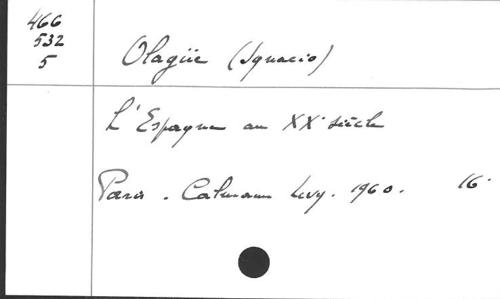 466
532
5
Olagüe (Ignacio)
L'Espagne au XXe siècle
Paris. Calmann Levy. 1960. 16°